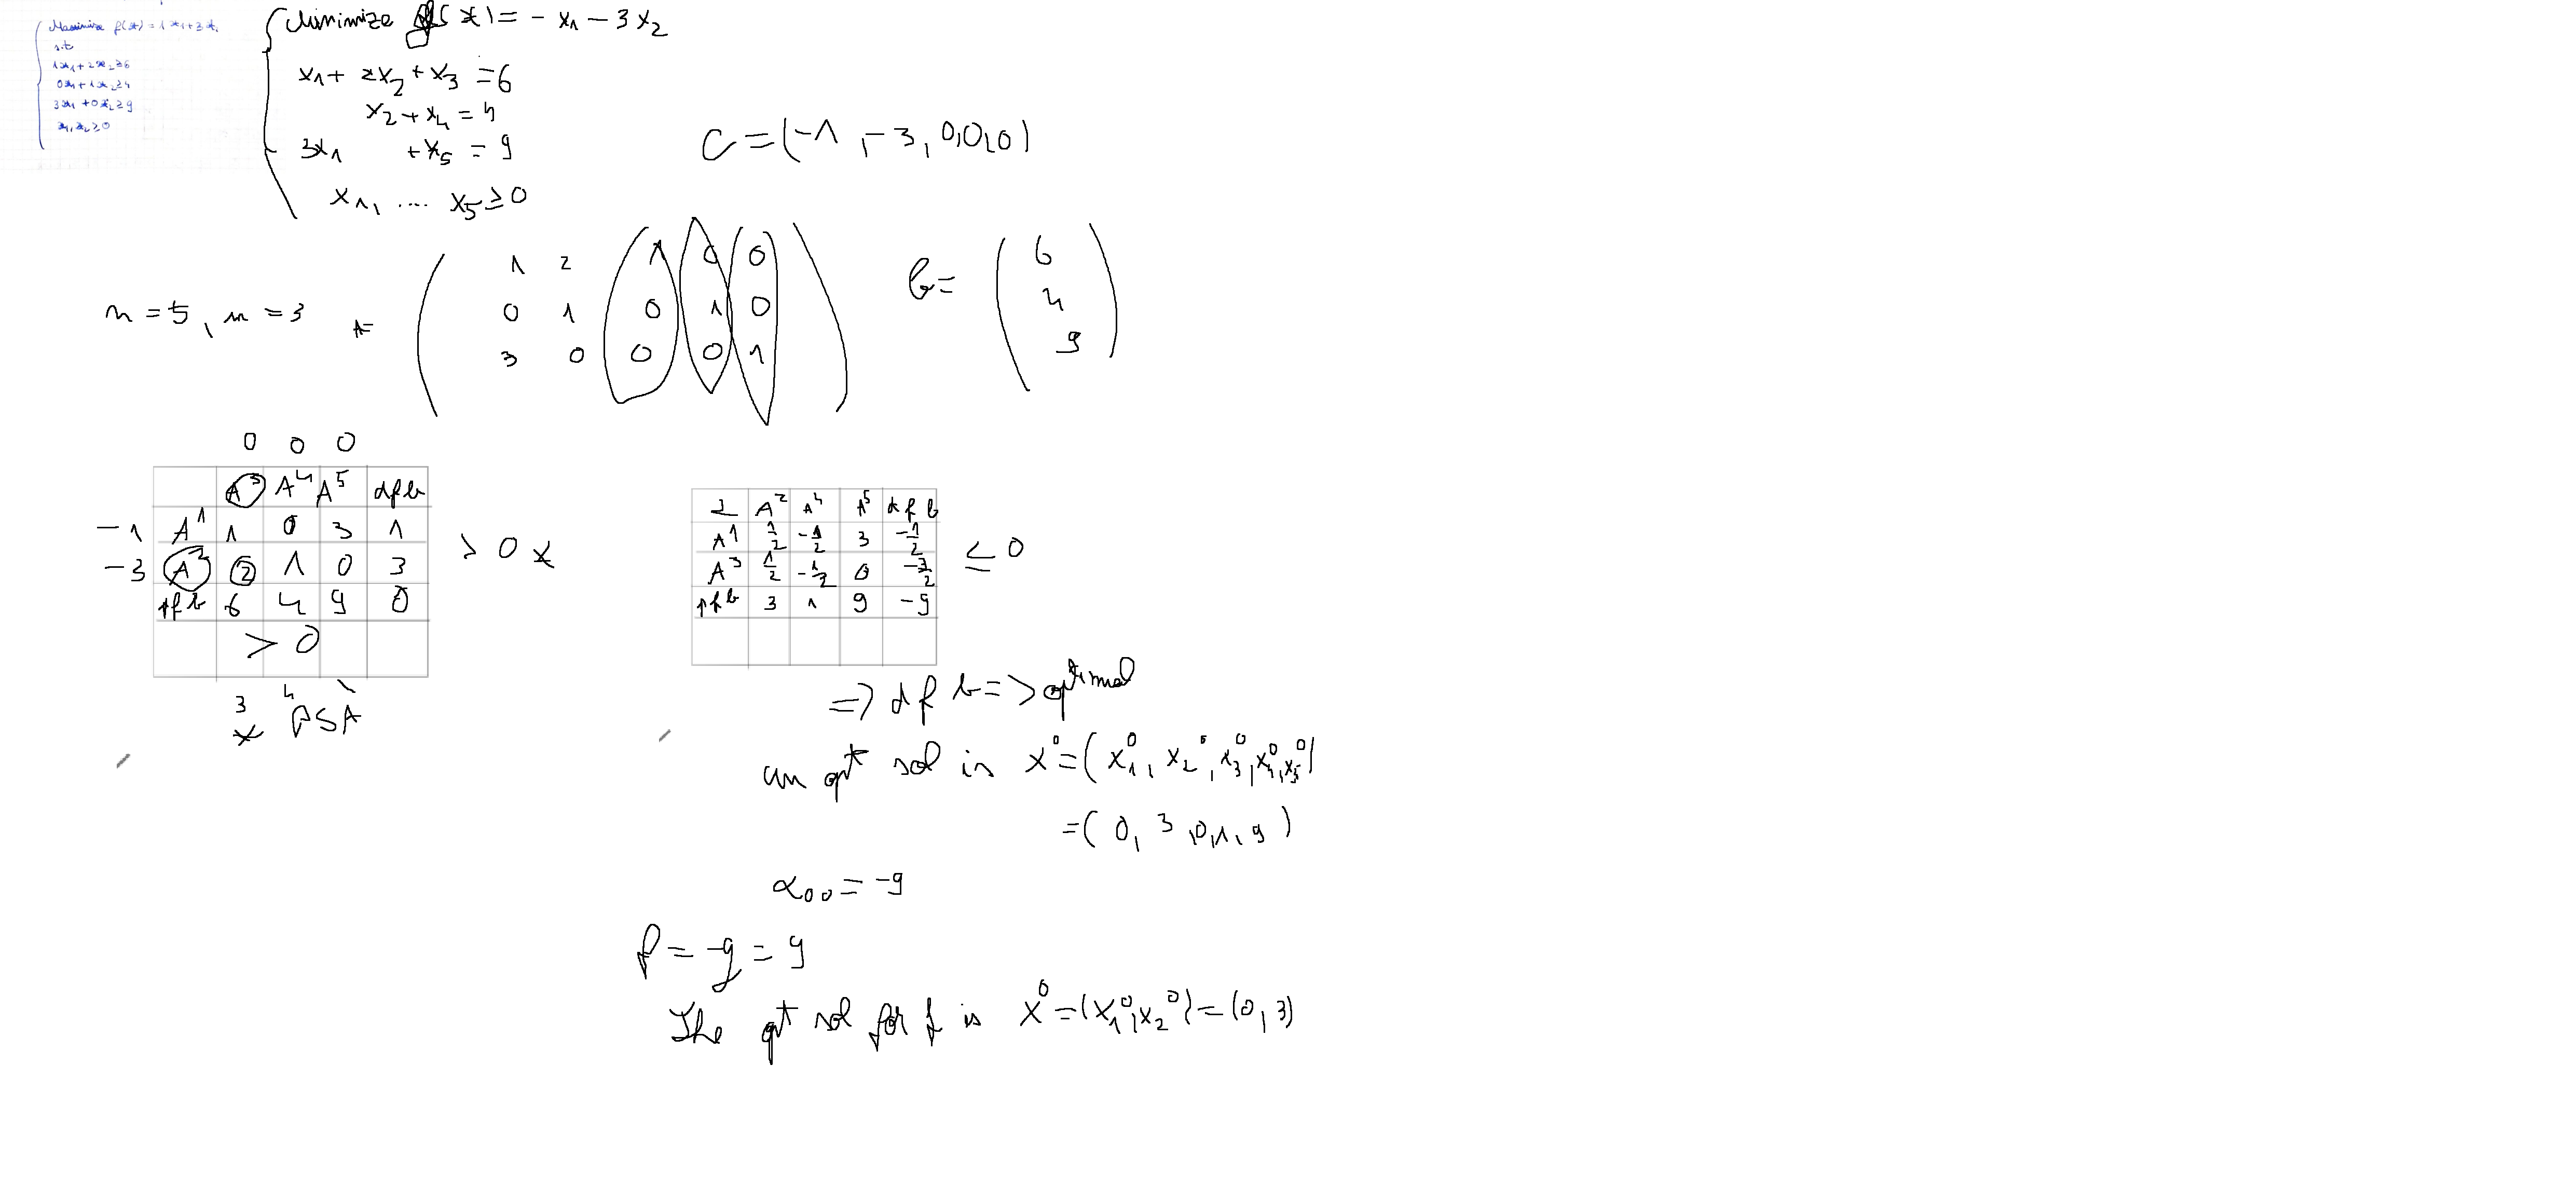 Maximize f(x) = 1x1+3x2
s.t
1x1+2x2≥6
0x1+1x2≥4
3x1+0x2≥9
x1,x2≥0
Minimize g(x) = -x1-3x2
x1+2x2+x3=6
x2+x4=4
3x1 +x5=9
x1, .... x5≥0
C=(-1,-3,0,0,0)
n=5, m=3 A=
1 2 1 0 0
0 1 0 1 0
3 0 0 0 1
b=
6
4
9
0 0 0
A³ A⁴ A⁵ dfb
-1 A¹ 1 0 3 1 > 0 x
-3 A² 2 1 0 3
pfb 6 4 9 0
> 0
3 4
x PSA
2 A² A⁴ A⁵ dfb
A¹ 1/2 -1/2 3 -1/2 ≤ 0
A³ 1/2 -1/2 0 -3/2
pfb 3 1 9 -9
=> dfb => optimal
an opt sol is x⁰=(x1⁰, x2⁰, x3⁰, x4⁰, x5⁰)
=(0, 3, 0, 1, 9)
α00=-9
f=-g=9
The opt sol for f is x⁰=(x1⁰,x2⁰)=(0,3)